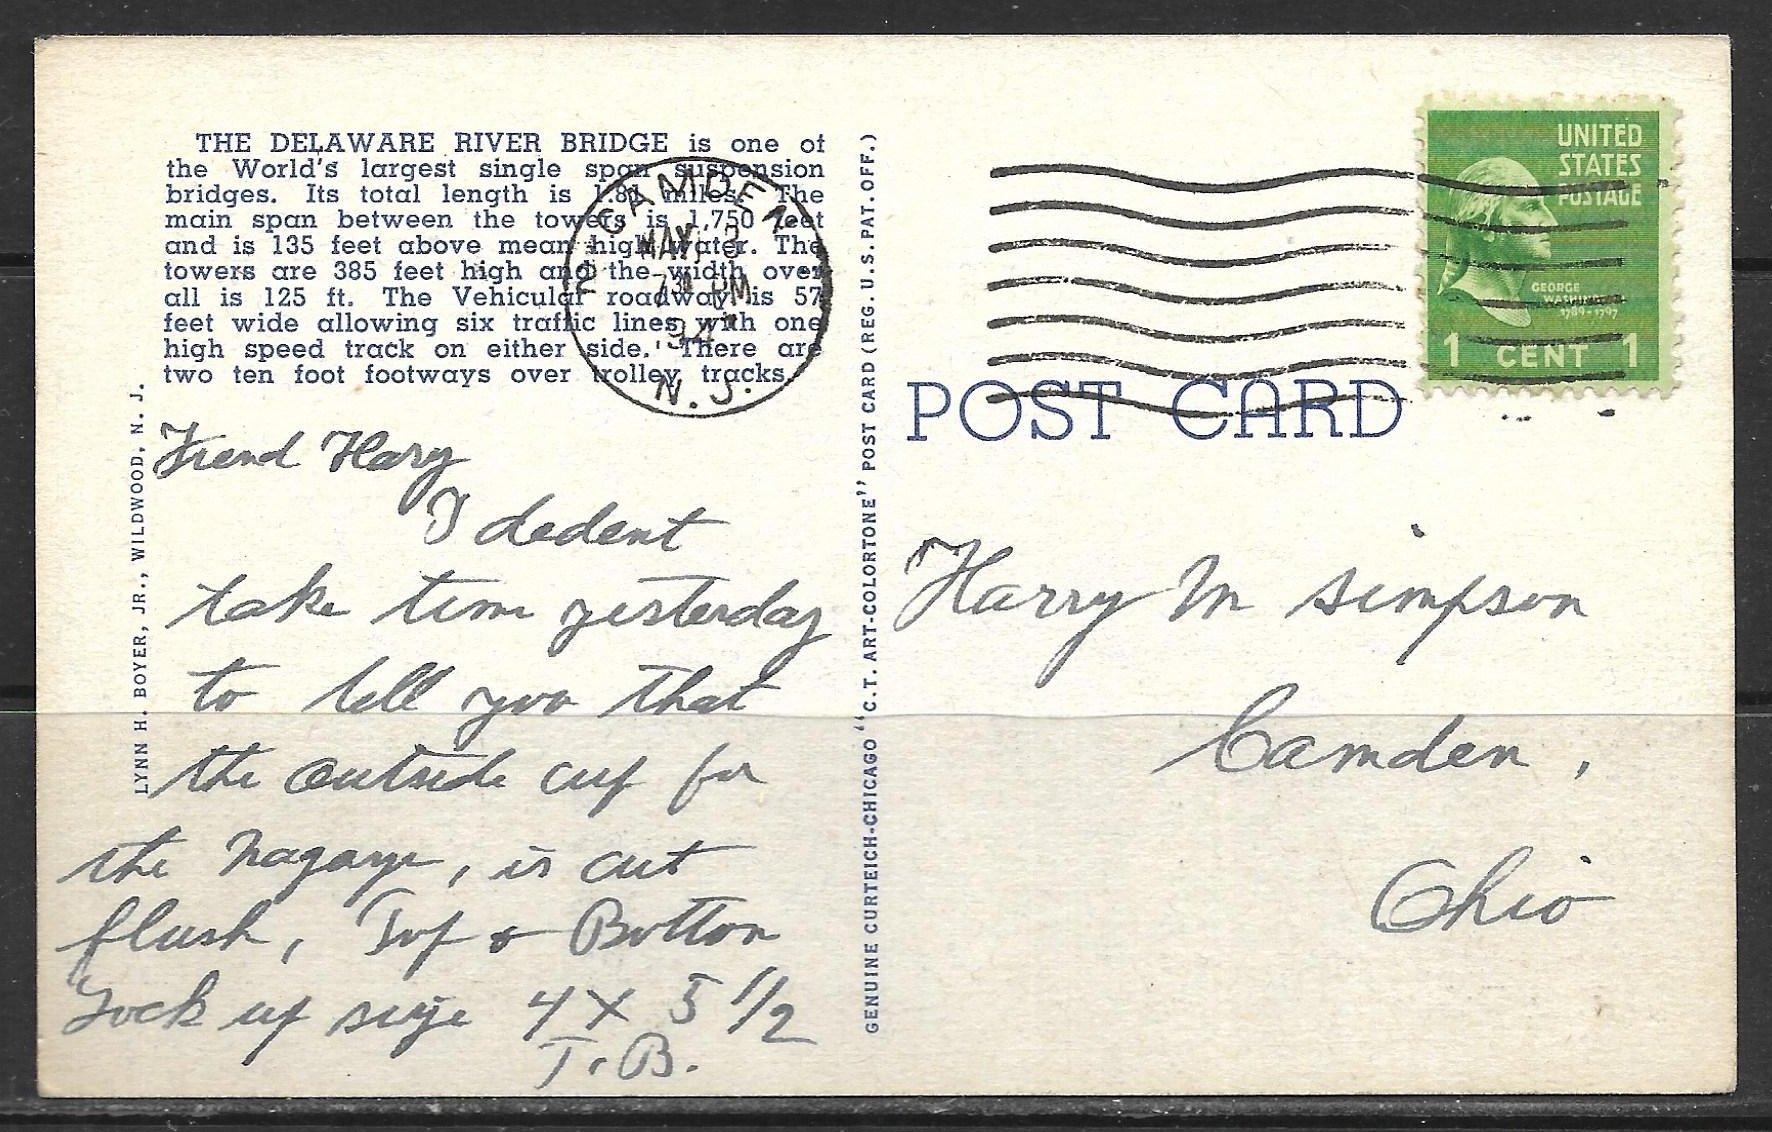 THE DELAWARE RIVER BRIDGE is one of
the World's largest single span suspension
bridges. Its total length is 1.81 miles. The
main span between the towers is 1,750 feet
and is 135 feet above mean high water. The
towers are 385 feet high and the width over
all is 125 ft. The Vehicular roadway is 57
feet wide allowing six traffic lines with one
high speed track on either side. There are
two ten foot footways over trolley tracks.
LYNN H. BOYER, JR., WILDWOOD, N. J.
Frend Hary
I dedent
take time yesterday
to tell you that
the outside cup for
the
, is cut
flush, Top & Bottom
Lock up size 4 X 5 1/2
T. B.
GENUINE CURTEICH-CHICAGO "C.T. ART-COLORTONE" POST CARD (REG. U.S. PAT. OFF.)
CAMDEN
MAY
730 PM
N. J.
UNITED
STATES
POSTAGE
GEORGE
WASHINGTON
1789-1797
1 CENT 1
POST CARD
Harry M simpson
Camden,
Ohio